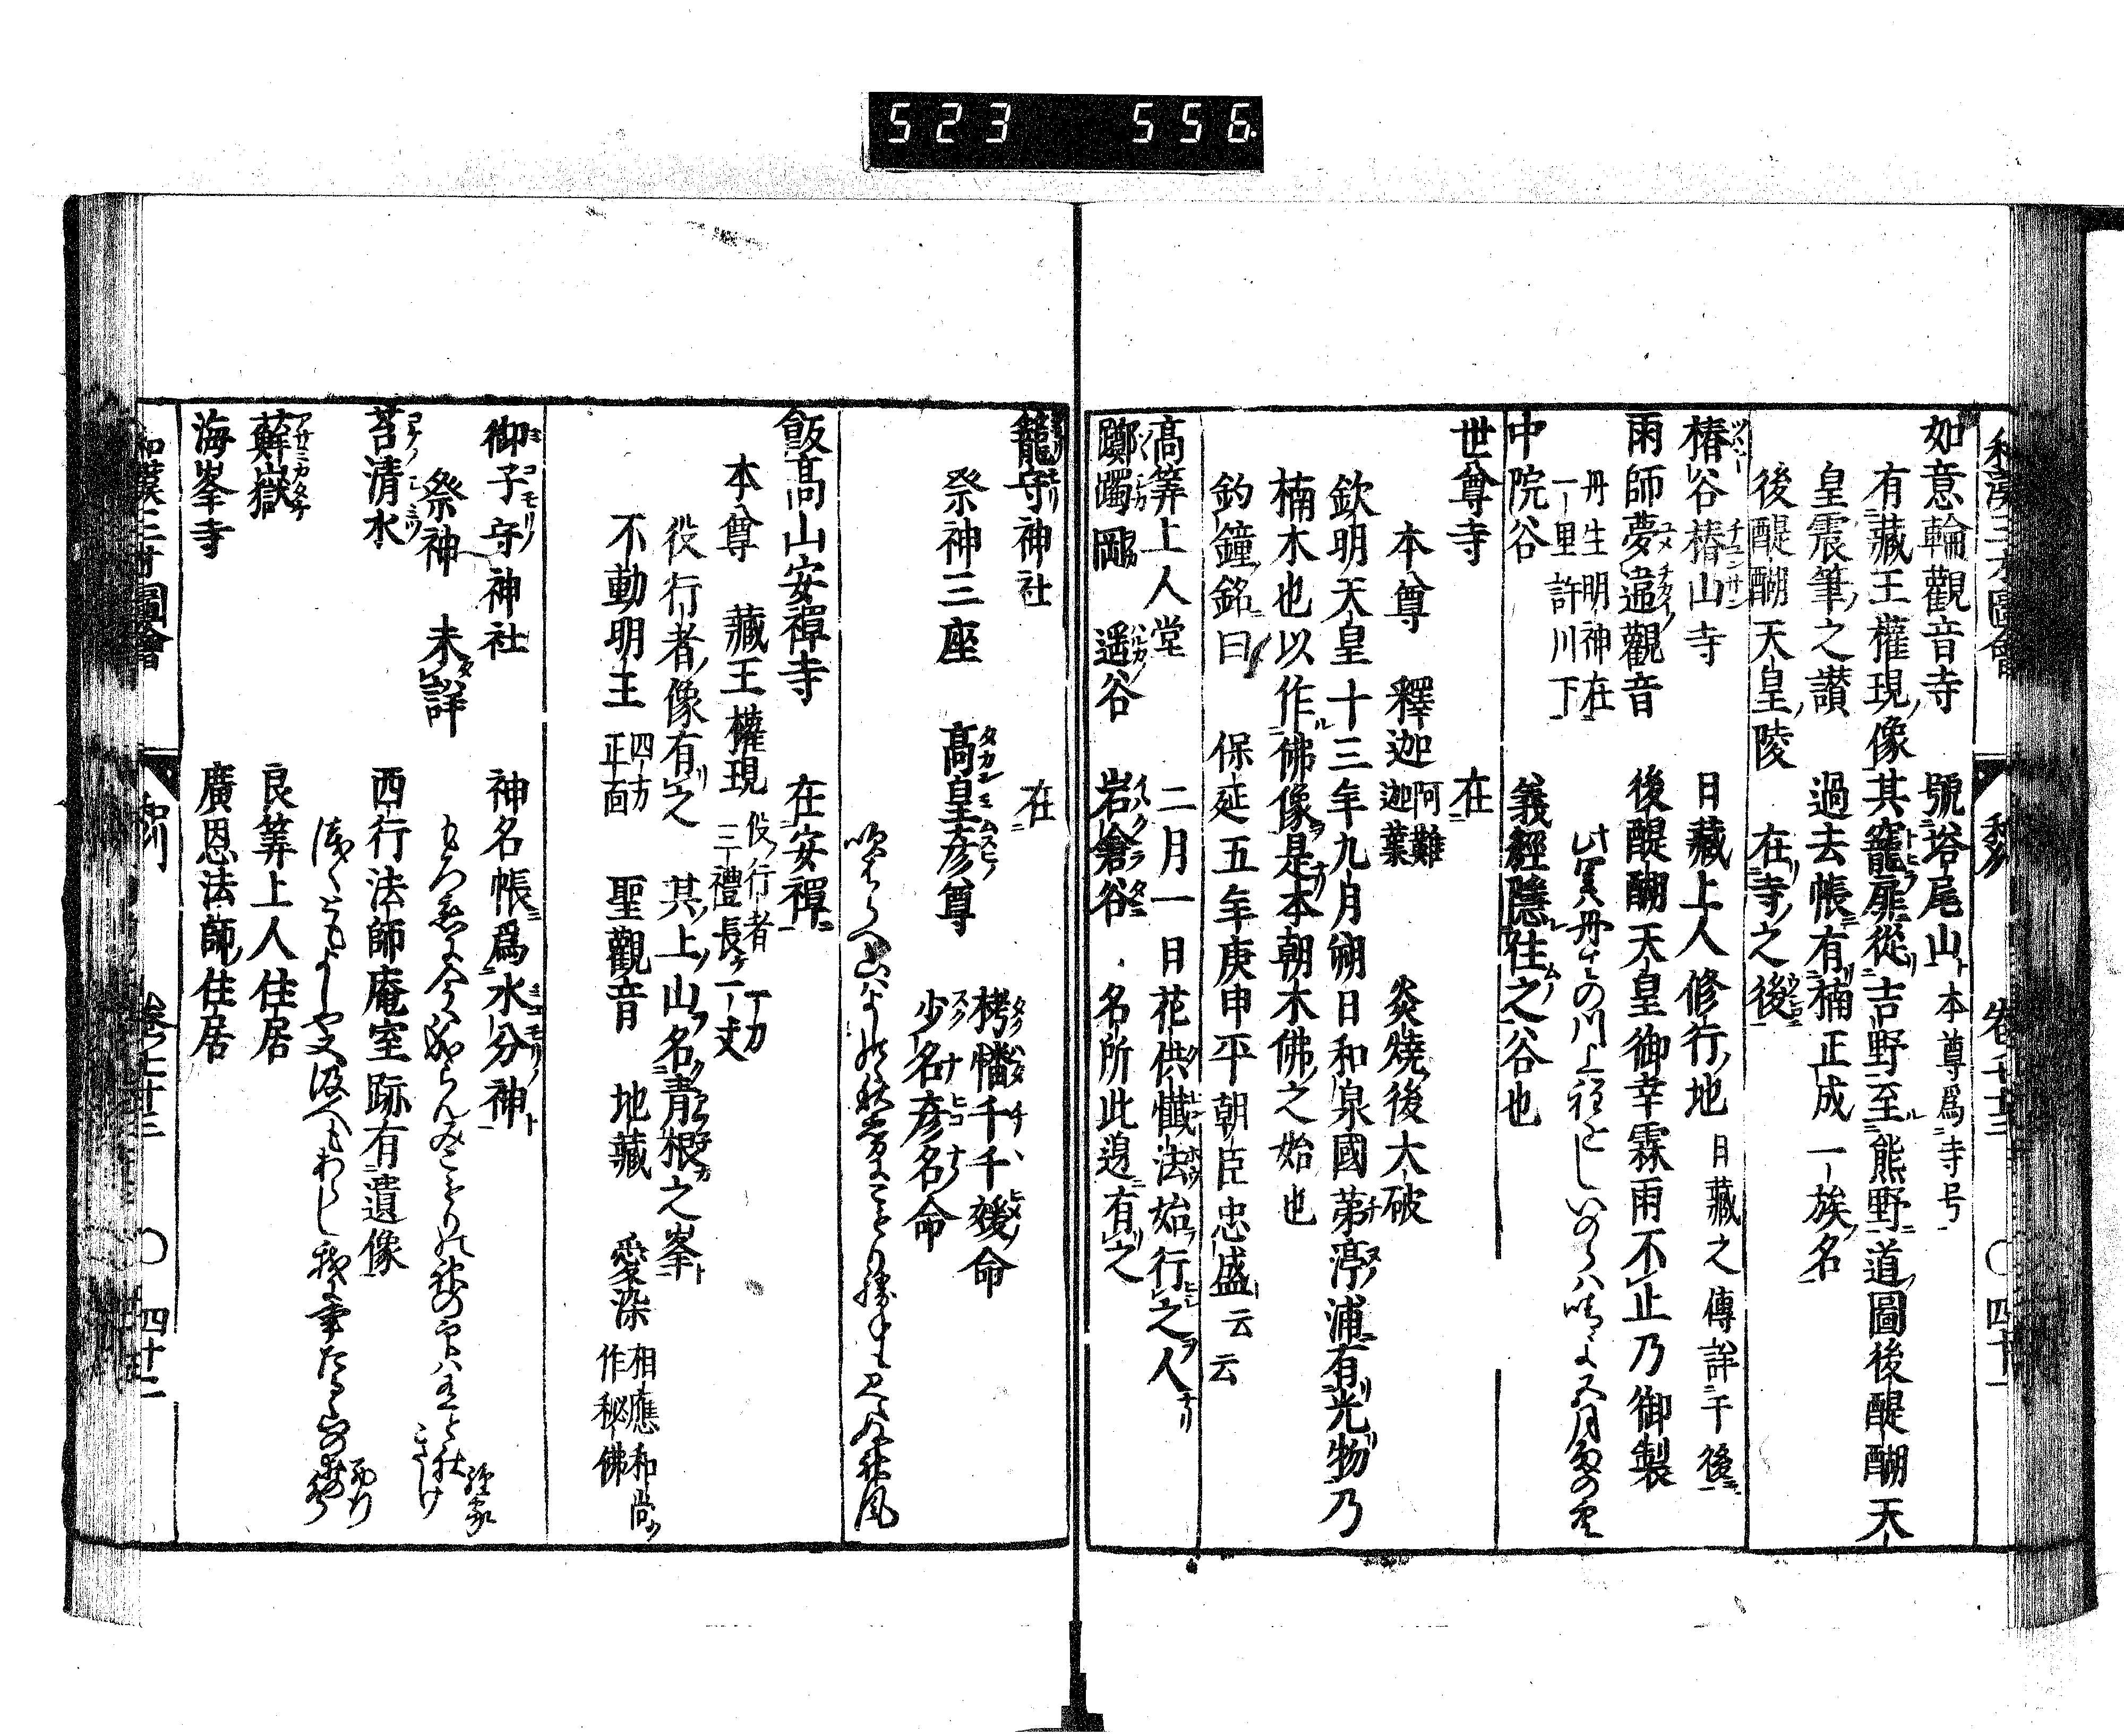 523 556
和漢三才圖會 和州 卷七十三 ○ 四十一
如意輪觀音寺 號塔尾山 本尊爲寺号
有藏王權現像其龕扉從吉野至熊野道圖後醍醐天
皇震筆之讃 過去帳有楠正成一族名
後醍醐天皇陵 在寺之後
椿谷椿山寺 日藏上人修行地 日藏之傳詳于後
雨師夢違觀音 後醍醐天皇御幸霖雨不止乃御製
丹生明神在
一里許川下
中院谷 義經隱住之谷也
世尊寺 在
本尊 釋迦 阿難 迦葉 炎燒後大破
欽明天皇十三年九月朔日和泉國茅渟浦有光物乃
楠木也以作佛像是本朝木佛之始也
釣鐘銘曰 保延五年庚申平朝臣忠盛云云
高筭上人堂 二月一日花供懺法始行之人
躑躅岡 遥谷 岩倉谷 名所此邉有之
籠守神社 在
祭神三座 高皇彦尊 栲幡千千㛐命
少名彦名命
飯高山安禪寺 在安禪
本尊 藏王權現 役行者一刀
三禮長一丈
役行者像有之 其上山名青根之峯
不動明王 四方正面 聖觀音 地藏 愛染 相應和尚作秘佛
御子守神社 神名帳爲水分神
祭神 未詳
苔清水 西行法師庵室跡有遺像
蘚嶽 良筭上人住居
海峯寺 廣恩法師住居
和漢三才圖會 和州 卷七十三 ○ 四十二